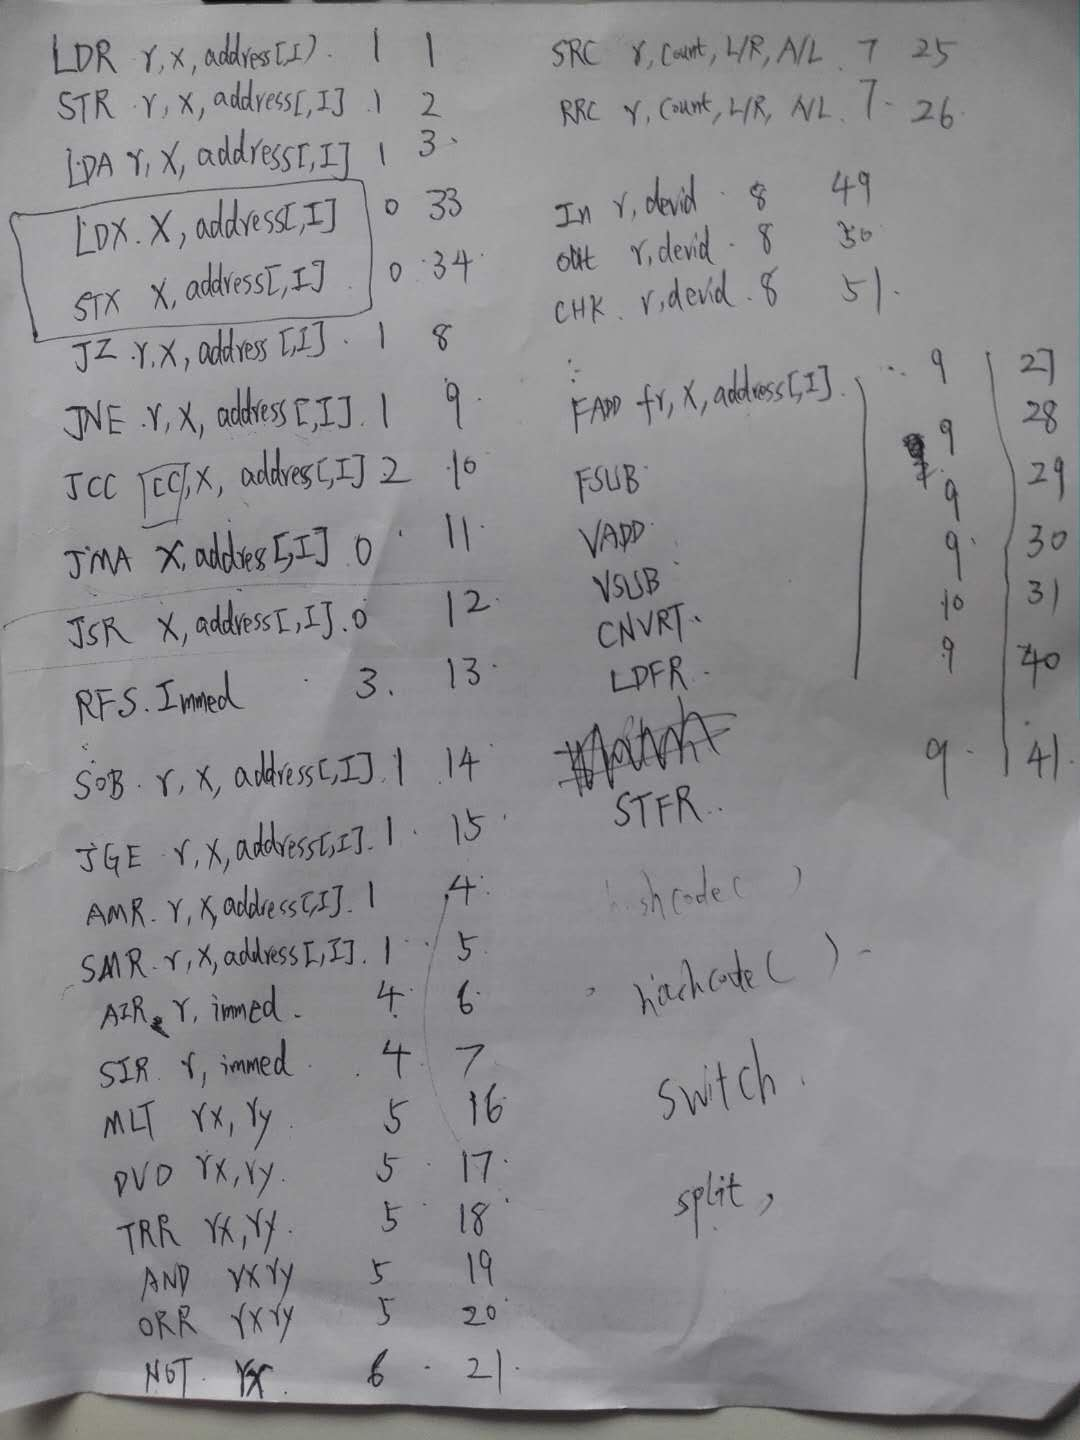 LDR r, x, address[,I). 1 1
STR r, x, address[,I] 1 2
LDA r, x, address[,I] 1 3
LDX. X, address[,I] 0 33
STX X, address[,I] 0 34
JZ r, x, address [,I]. 1 8
JNE r, x, address[,I]. 1 9
JCC [CC], x, address[,I] 2 10
JMA X, addres[,I] 0 11
JSR X, address[,I]. 0 12
RFS. Immed 3. 13
SOB r, x, address[,I]. 1 14
JGE r, x, address[,I]. 1 15
AMR. r, x, address[,I]. 1 4
SMR. r, x, address[,I]. 1 5
AIR r, immed. 4 6
SIR r, immed 4 7
MLT rx, ry 5 16
DVD rx, ry. 5 17
TRR rx, ry. 5 18
AND rx ry 5 19
ORR rx ry 5 20
NOT. rx. 6 21
SRC r, count, L/R, A/L. 7 25
RRC r, count, L/R, A/L. 7. 26
In r, devid 8 49
out r, devid. 8 50
CHK. r, devid. 8 51.
FADD fr, x, address[,I]. 9 27
FSUB 9 28
VADD 9 29
VSUB 9 30
CNVRT. 10 31
LDFR. 9 40
STFR.. 9. 41.
hashcode( )
hashcode( ) -
switch.
split,